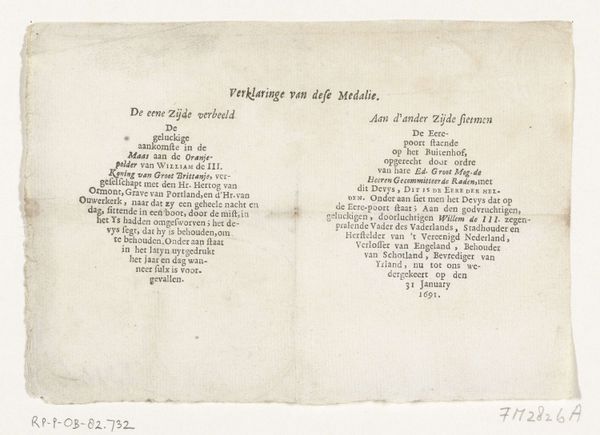 Verklaringe van dese Medalie.
De eene Zijde verbeeld
De
geluckige
aankomste in de
Maas aan de Oranje-
polder van WILLIAM de III.
Koning van Groot Brittanje, ver-
geselschapt met den Hr. Hertog van
Ormont, Grave van Portland, en d'Hr. van
Ouwerkerk, naar dat zy een geheele nacht en
dag, sittende in een boot, door de mist, in
het Ys hadden omgesworven; het de-
vys segt, dat hy is behouden, om
te behouden. Onder aan staat
in het latyn uytgedrukt
het jaar en dag wan-
neer sulx is voor-
gevallen.
Aan d'ander Zijde sietmen
De Eere-
poort staende
op het Buitenhof,
opgerecht door ordre
van hare Ed. Groot Mog. de
Heeren Gecommitteerde Raden, met
dit Devys, DIT IS DE EERE DER HEL-
DEN. Onder aan siet men het Devys dat op
de Eere-poort staat; Aan den godvruchtigen,
geluckigen, doorluchtigen Willem de III. zegen-
pralende Vader des Vaderlands, Stadhouder en
Hersteller van 't Vereenigd Nederland,
Verlosser van Engeland, Behouder
van Schotland, Bevrediger van
Yrland, nu tot ons we-
dergekeert op den
31 January
1691.
RP-P-OB-82.732
7M2826A